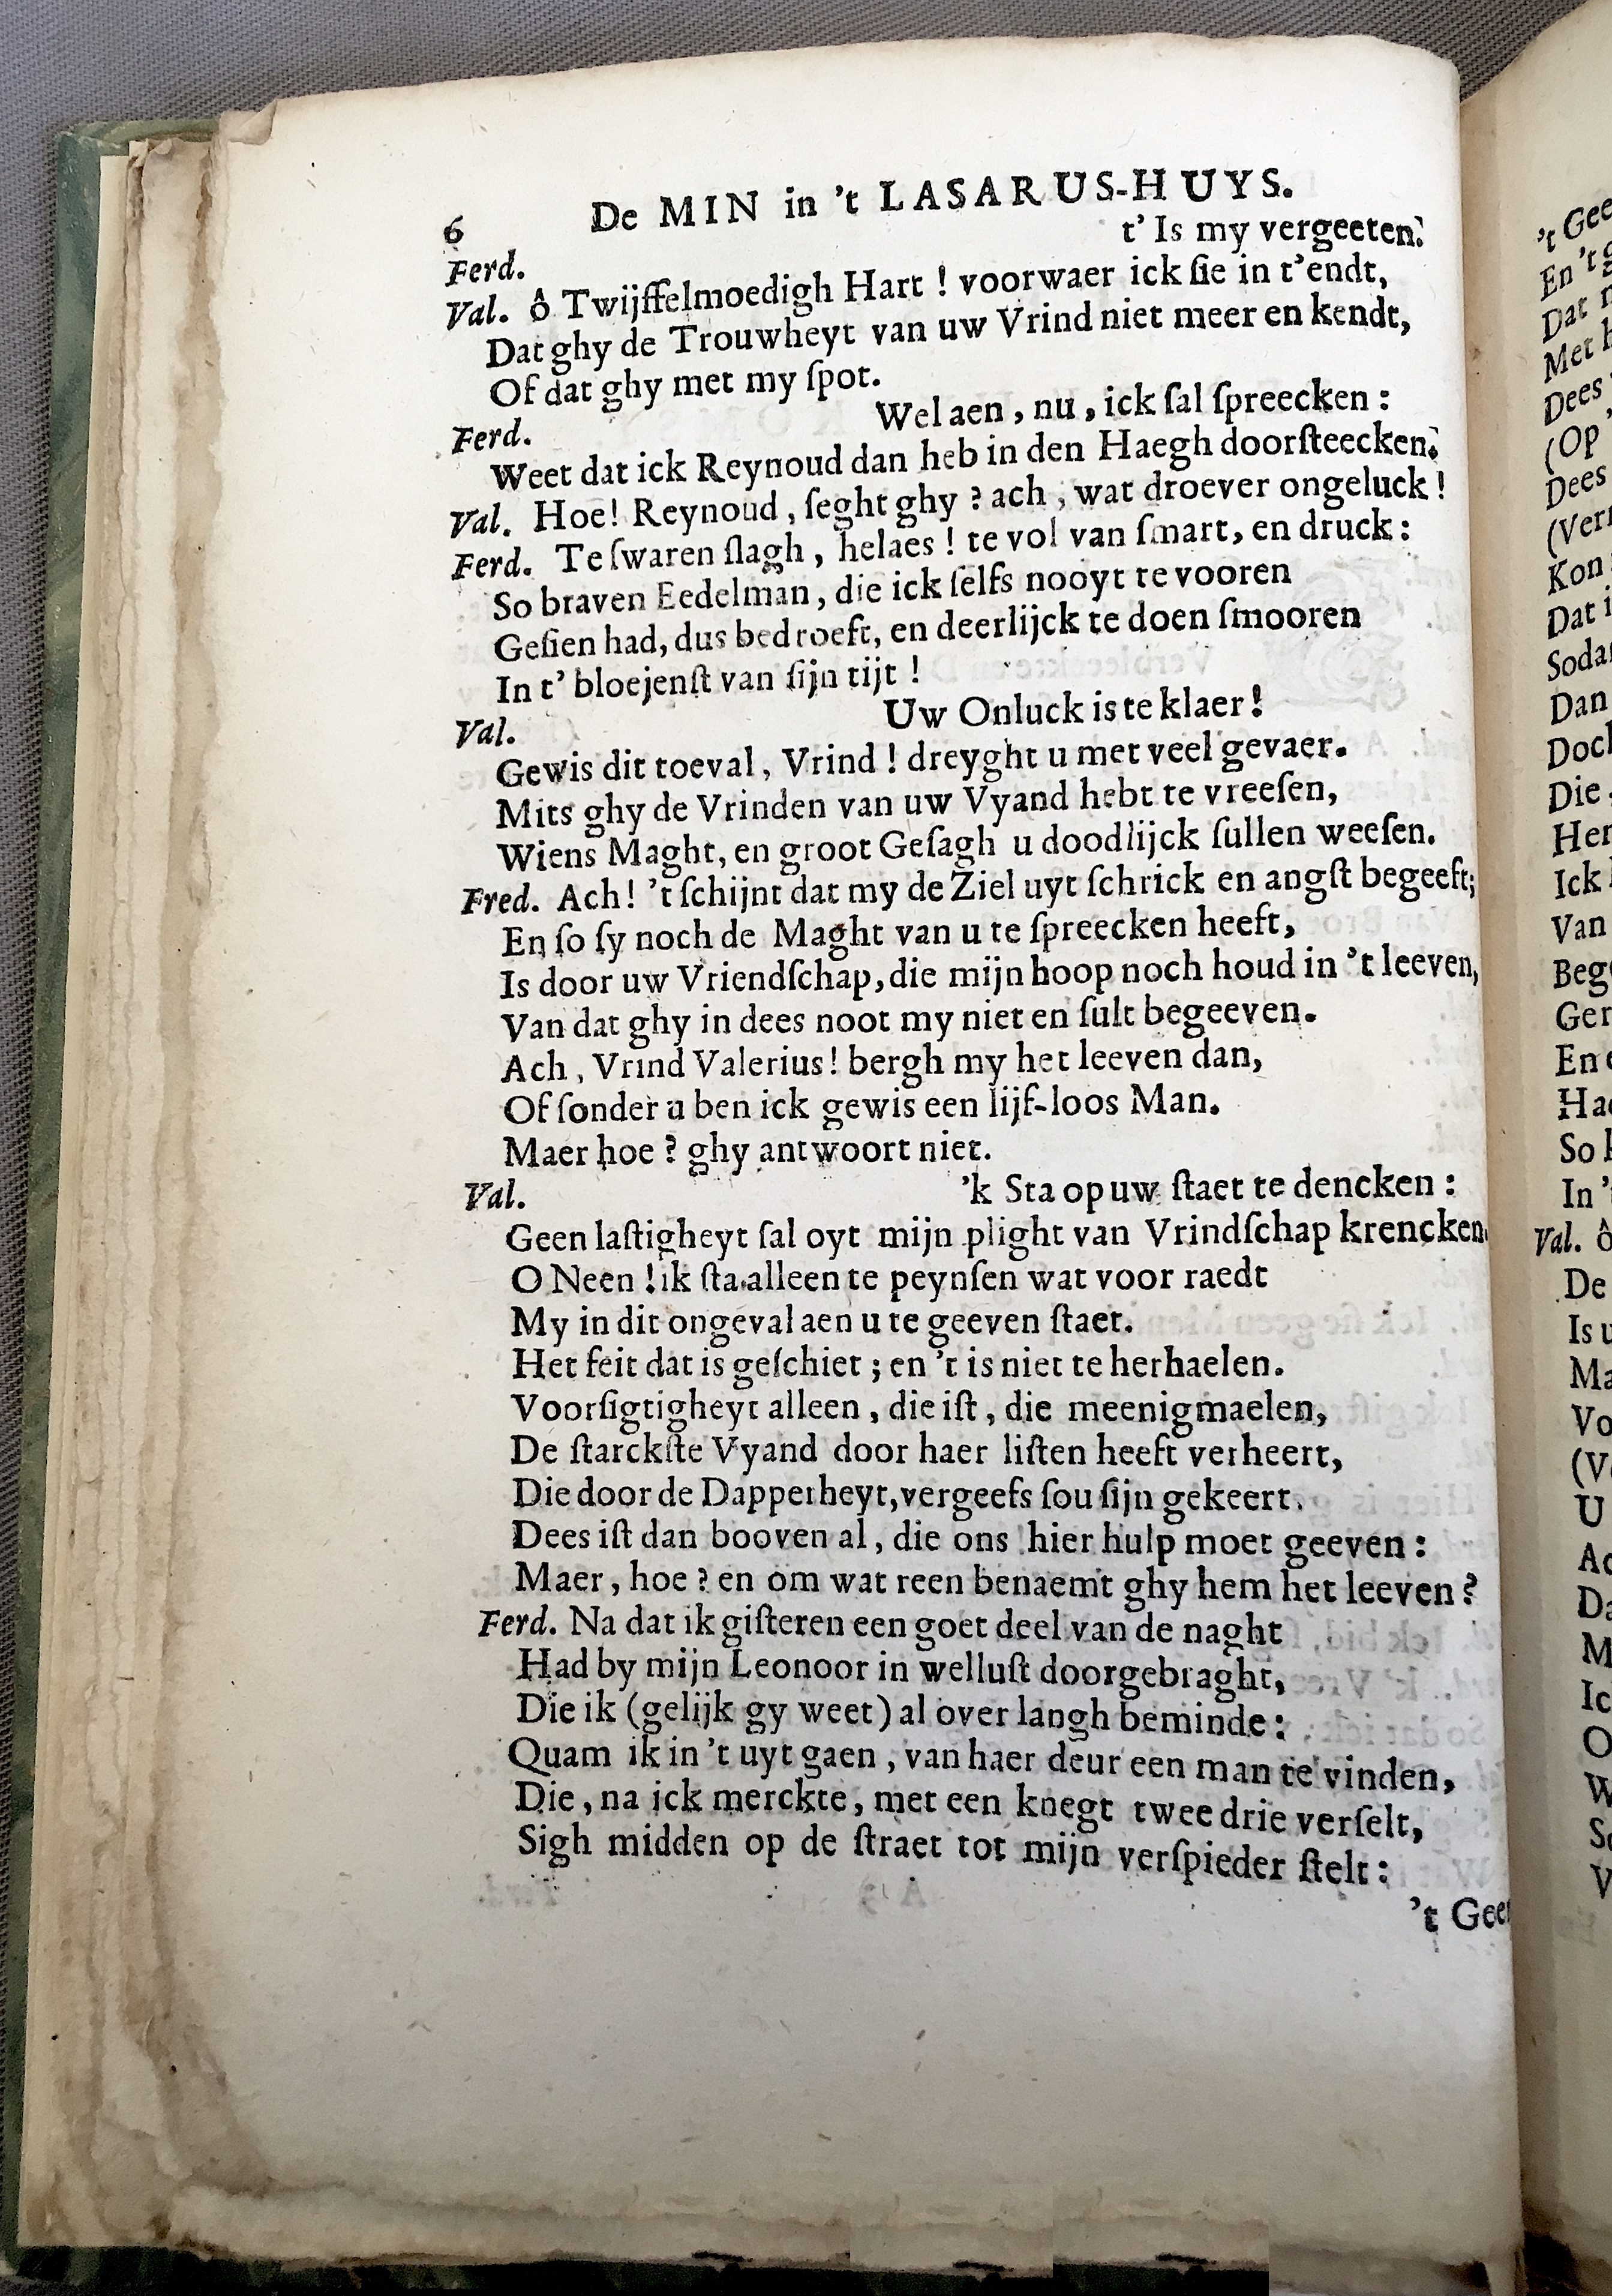 6 De MIN in 't LASARUS-HUYS.
Ferd. t' Is my vergeeten.
Val. ô Twijffelmoedigh Hart ! voorwaer ick sie in t'endt,
Dat ghy de Trouwheyt van uw Vrind niet meer en kendt,
Of dat ghy met my spot.
Ferd. Wel aen, nu, ick sal spreecken :
Weet dat ick Reynoud dan heb in den Haegh doorsteecken.
Val. Hoe! Reynoud, seght ghy ? ach, wat droever ongeluck !
Ferd. Te swaren slagh, helaes ! te vol van smart, en druck :
So braven Eedelman, die ick selfs nooyt te vooren
Gesien had, dus bedroeft, en deerlijck te doen smooren
In t' bloejenst van sijn tijt !
Val. Uw Onluck is te klaer !
Gewis dit toeval, Vrind ! dreyght u met veel gevaer.
Mits ghy de Vrinden van uw Vyand hebt te vreesen,
Wiens Maght, en groot Gesagh u doodlijck sullen weesen.
Fred. Ach! 't schijnt dat my de Ziel uyt schrick en angst begeeft;
En so sy noch de Maght van u te spreecken heeft,
Is door uw Vriendschap, die mijn hoop noch houd in 't leeven,
Van dat ghy in dees noot my niet en sult begeeven.
Ach, Vrind Valerius! bergh my het leeven dan,
Of sonder u ben ick gewis een lijf-loos Man.
Maer hoe ? ghy antwoort niet.
Val. 'k Sta op uw staet te dencken :
Geen lastigheyt sal oyt mijn plight van Vrindschap krencken.
O Neen ! ik sta alleen te peynsen wat voor raedt
My in dit ongeval aen u te geeven staet.
Het feit dat is geschiet ; en 't is niet te herhaelen.
Voorsigtigheyt alleen, die ist, die meenigmaelen,
De starckste Vyand door haer listen heeft verheert,
Die door de Dapperheyt, vergeefs sou sijn gekeert.
Dees ist dan booven al, die ons hier hulp moet geeven :
Maer, hoe ? en om wat reen benaemt ghy hem het leeven ?
Ferd. Na dat ik gisteren een goet deel van de naght
Had by mijn Leonoor in wellust doorgebraght,
Die ik (gelijk gy weet) al over langh beminde :
Quam ik in 't uyt gaen, van haer deur een man te vinden,
Die, na ick merckte, met een knegt twee drie verselt,
Sigh midden op de straet tot mijn verspieder stelt :
't Gee
't Gee
En 't
Dat
Met
Dees
(Op
Dees
(Ver
Kon
Dat
Soda
Dan
Doc
Die
Her
Ick
Van
Beg
Ger
En
Ha
So
In
Val. ô
De
Is
Ma
Vo
(V
U
Ac
Da
M
Ic
O
W
So
V